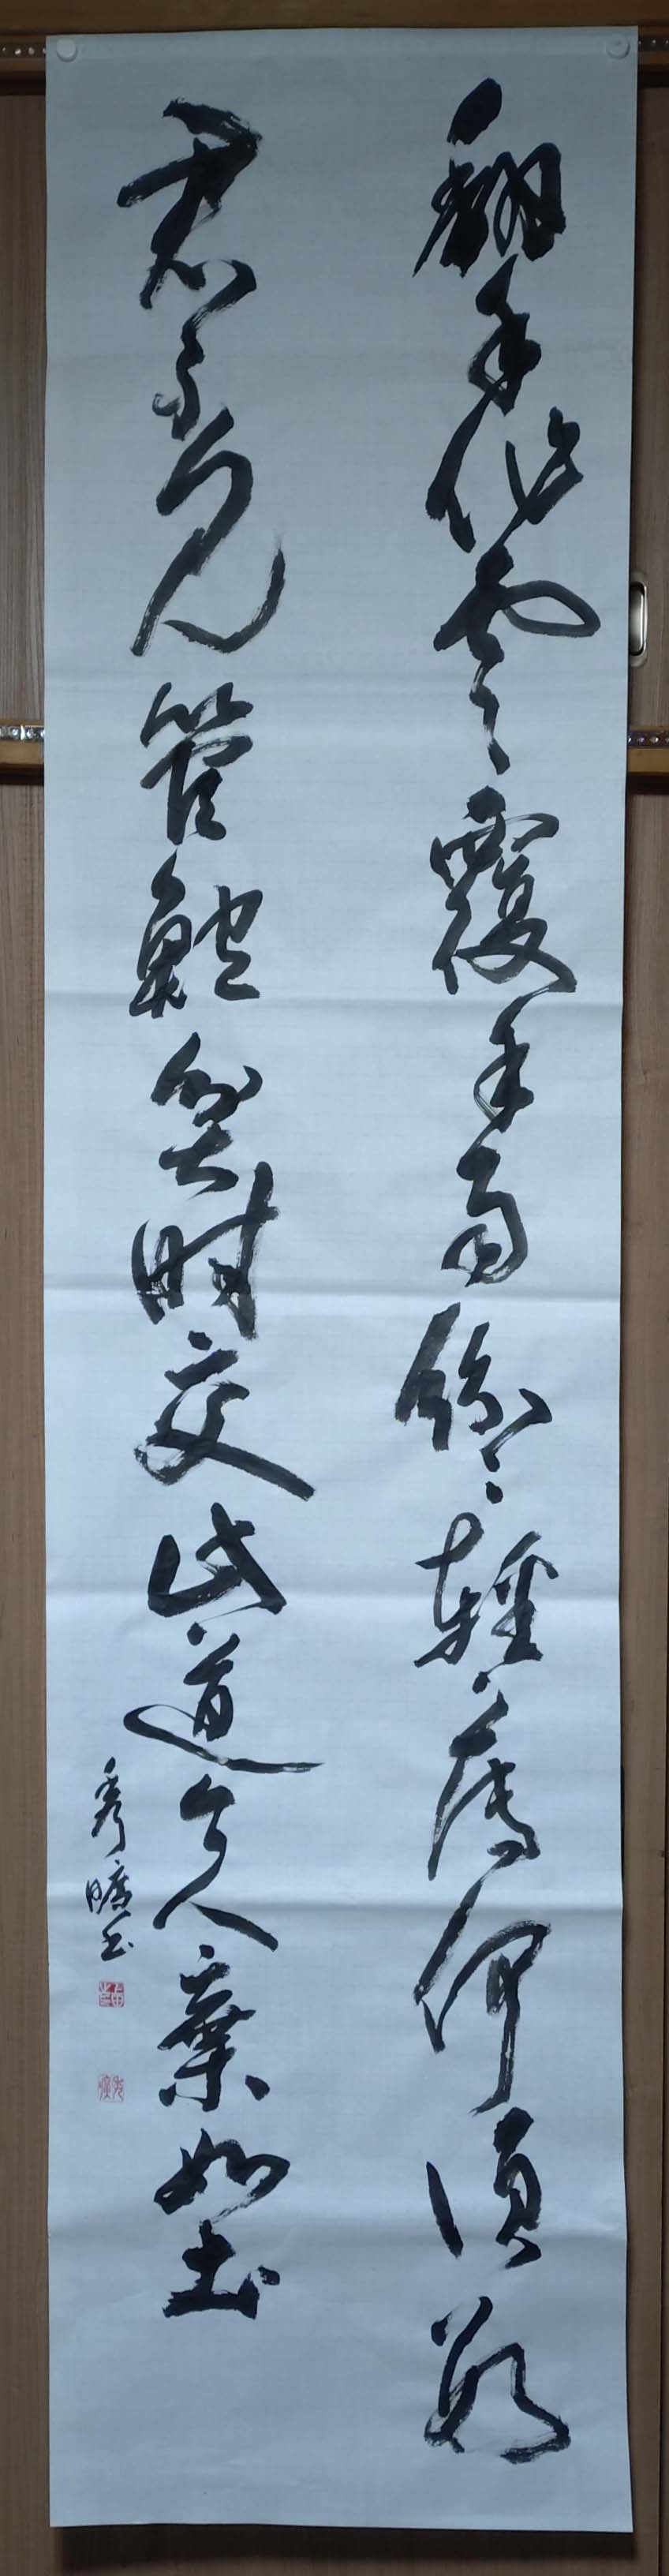 翻手作雲覆手雨紛々輕薄何須數
君不見管鮑貧時交此道今人棄如土
秀曠書